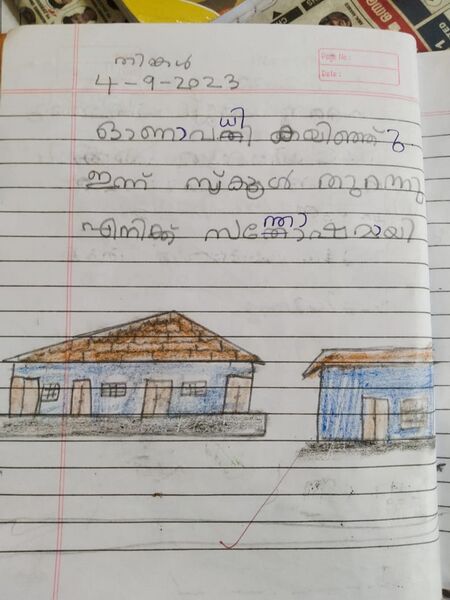 Page No:
Date:
തിങ്കൾ
4-9-2023
ഓണാവധി കയിഞ്ഞു
ഇന്ന് സ്കൂൾ തുറന്നു
എനിക്ക് സന്തോഷമായി